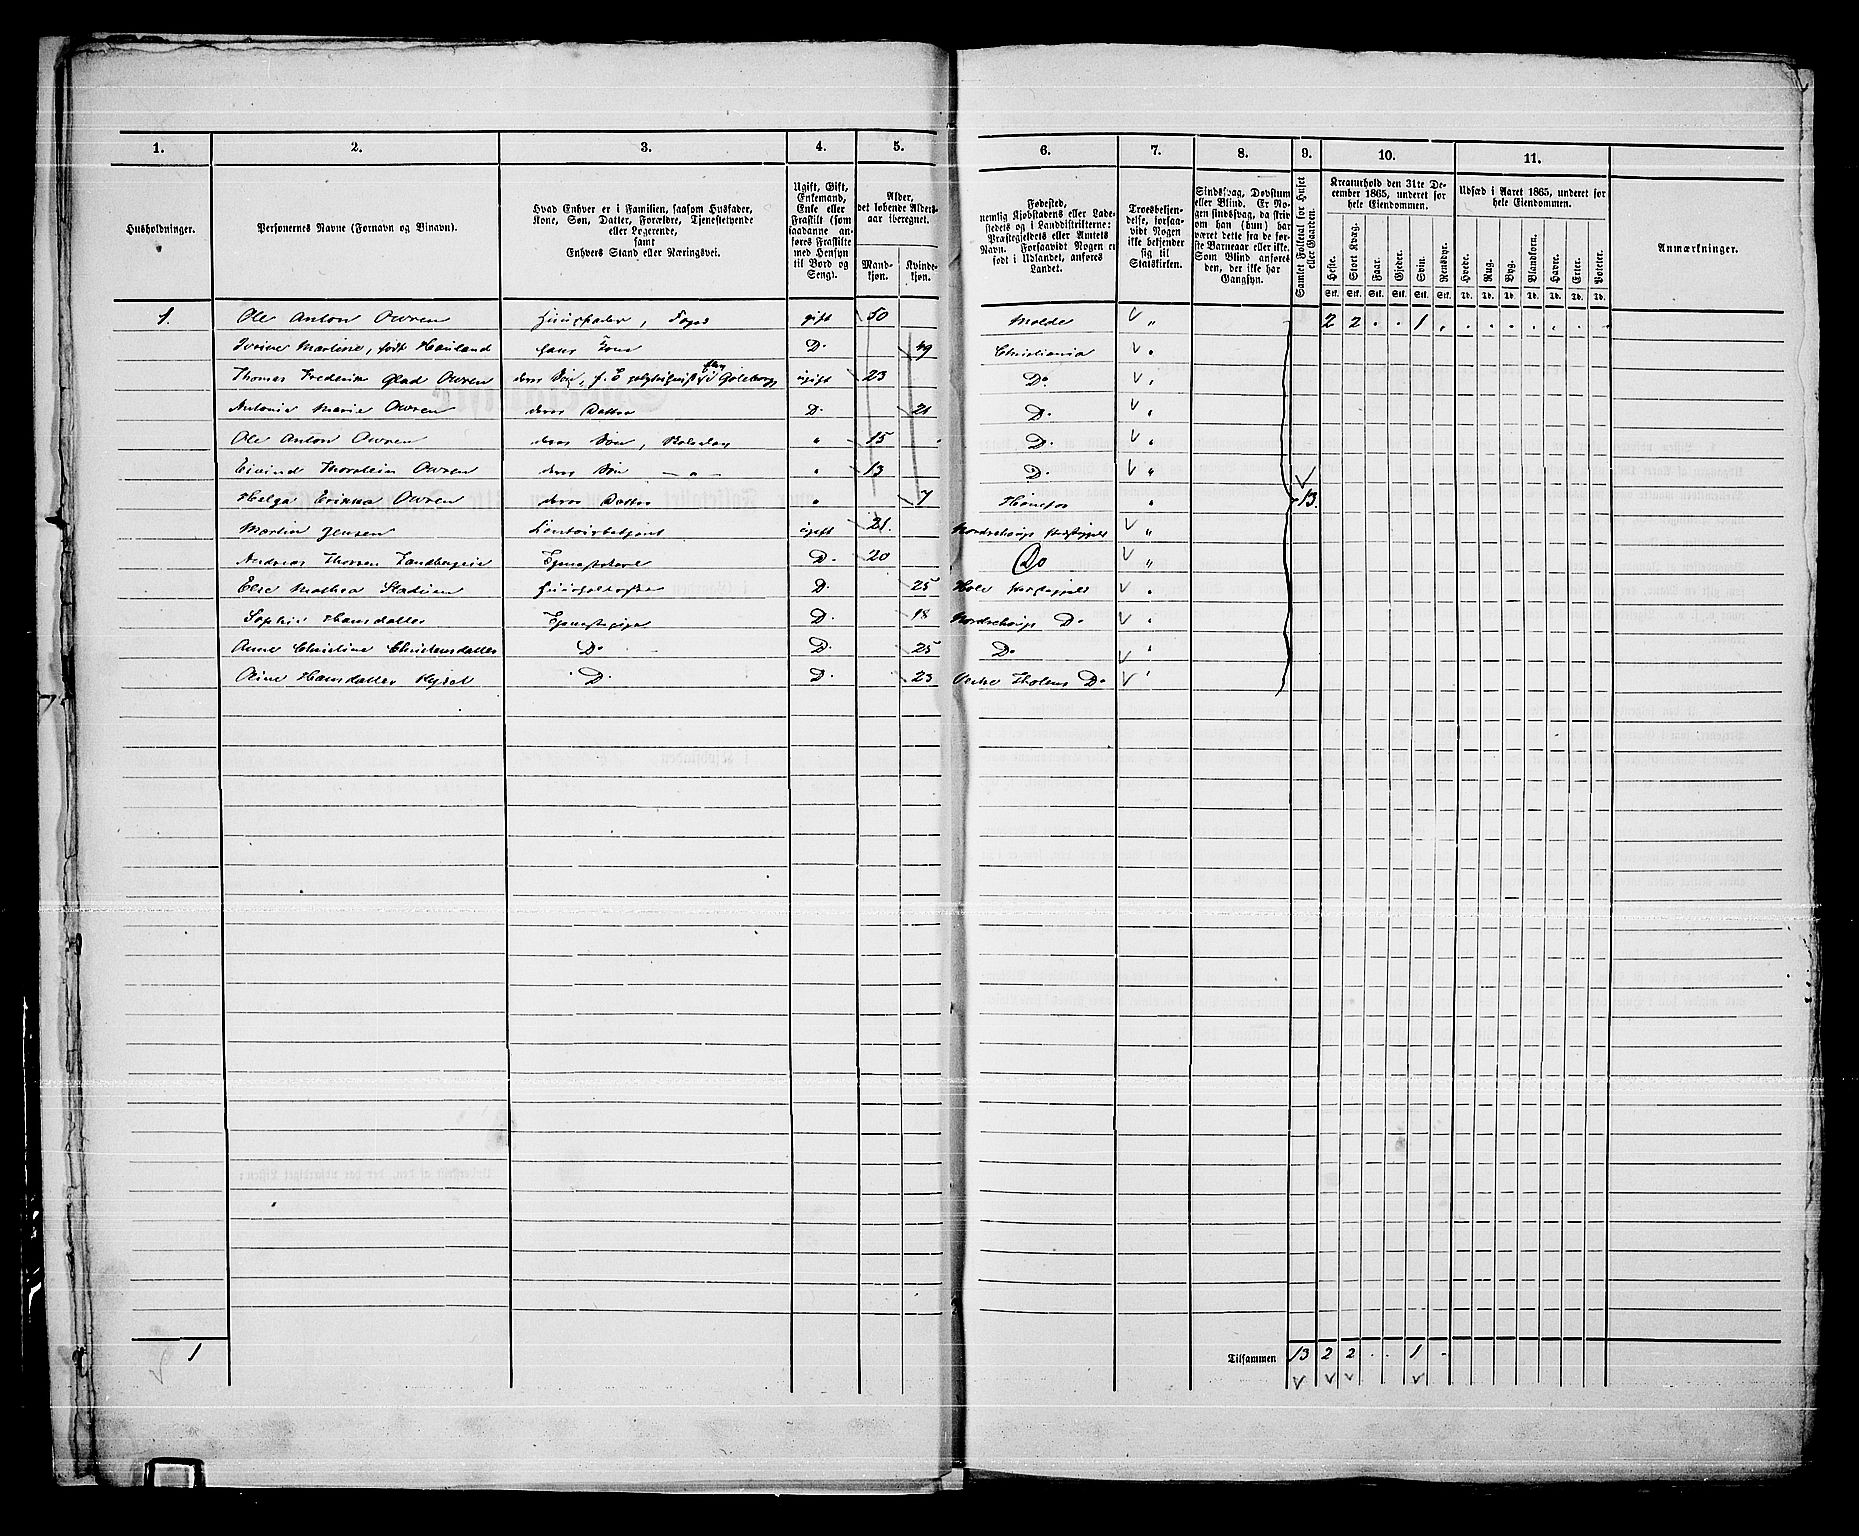 1. 2. 3. 4. 5. 6. 7. 8. 9. 10. 11.
Husholdninger.
Personernes Navne (Fornavn og Binavn).
Hvad Enhver er i Familien, saasom Husfader,
Kone, Søn, Datter, Forældre, Tjenestetyende
eller Logerende,
samt
Enhvers Stand eller Næringsvei.
Ugift, Gift,
Enkemand,
Enke eller
Fraskilt (som
saadanne an-
føres Fraskilte
med Hensyn
til Bord og
Seng).
Alder,
det løbende Alders-
aar iberegnet.
Mand-
kjøn.
Kvinde-
kjøn.
Fødested,
nemlig Kjøbstadens eller Lade-
stedets og i Landdistrikterne:
Præstegjeldets eller Amtets
Navn. Forsaavidt Nogen er
født i Udlandet, anføres
Landet.
Troesbekjen-
delse, forsaa-
vidt Nogen
ikke bekjender
sig til
Statskirken.
Sindssvag, Døvstum
eller Blind. Er No-
gen sindssvag, da skriv
om han (hun) har
været dette fra de før-
ste Barneaar eller ikke.
Som Blind anføres
den, der ikke har
Gangsyn.
Samlet Folketal for Huset
eller Gaarden.
Kreaturhold den 31te De-
cember 1865, underet før
hele Eiendommen.
Heste. Stort Kvæg. Faar. Gjeder. Svin. Rensdyr.
Stk. Stk. Stk. Stk. Stk. Stk.
Udsæd i Aaret 1865, underet før
hele Eiendommen.
Hvede. Rug. Byg. Blandkorn. Havre. Erter. Poteter.
Td. Td. Td. Td. Td. Td. Td.
Anmærkninger.
1. Ole Anton Owren Huusfader, Foged gift 50 Molde 2 2 . . 1 .
Martine, født Hauland hans Kone D. 49 Christiania
Thomas Frederik Glad Owren deres Søn, ugift 23 Do
Antonie Marie Owren deres Datter D. 21 D.
Ole Anton Owren deres Søn, 15 D.
Eivind Thorstein Owren deres Søn 13 D.
Helga Erikka Owren deres Datter 7 Hønefos 13.
Martin Jensen Contoirbetjent ugift 21. Norderhougs
Andreas Thorsen Tjenestekarl D. 20 Do
Else Mathea D. 25 Hole
Sophie Hansdatter Tjenestepige D. 18 Norderhougs D.
Anne Christine Christensdatter Do D. 25 Do
Oline Hansdatter D. D. 23 Vestre Thotens Do
1
Tilsammen 13 2 2 . . 1 .